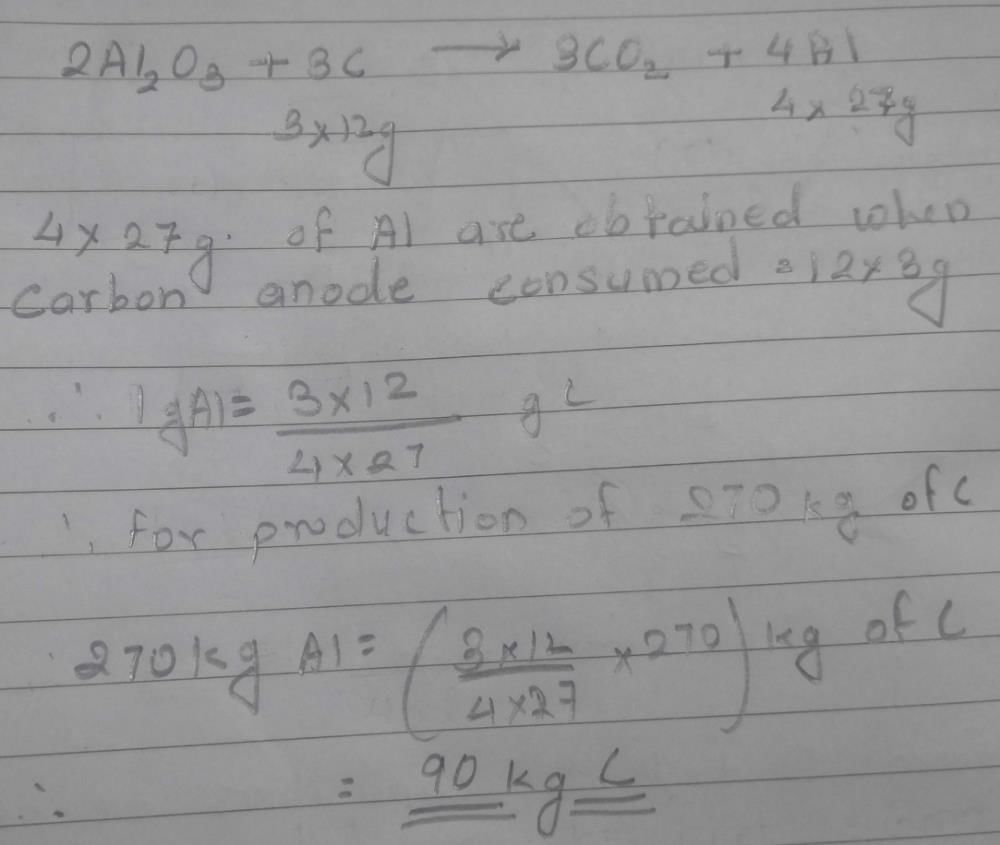 2Al₂O₃ + 3C → 3CO₂ + 4Al
3×12g 4×27g
4×27g. of Al are obtained when
carbon anode consumed = 12×3g
∴ 1gAl = 3×12 / 4×27 g C
∴ for production of 270 kg of C
270kg Al = (3×12 / 4×27 × 270) kg of C
∴ = 90 kg C